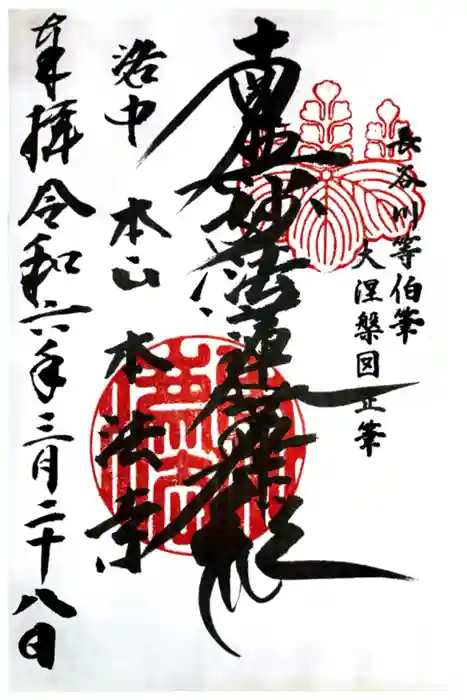 長谷川等伯筆
大涅槃図正筆
南無妙法蓮華経
洛中 本山 本法寺
奉拝 令和六年三月二十八日